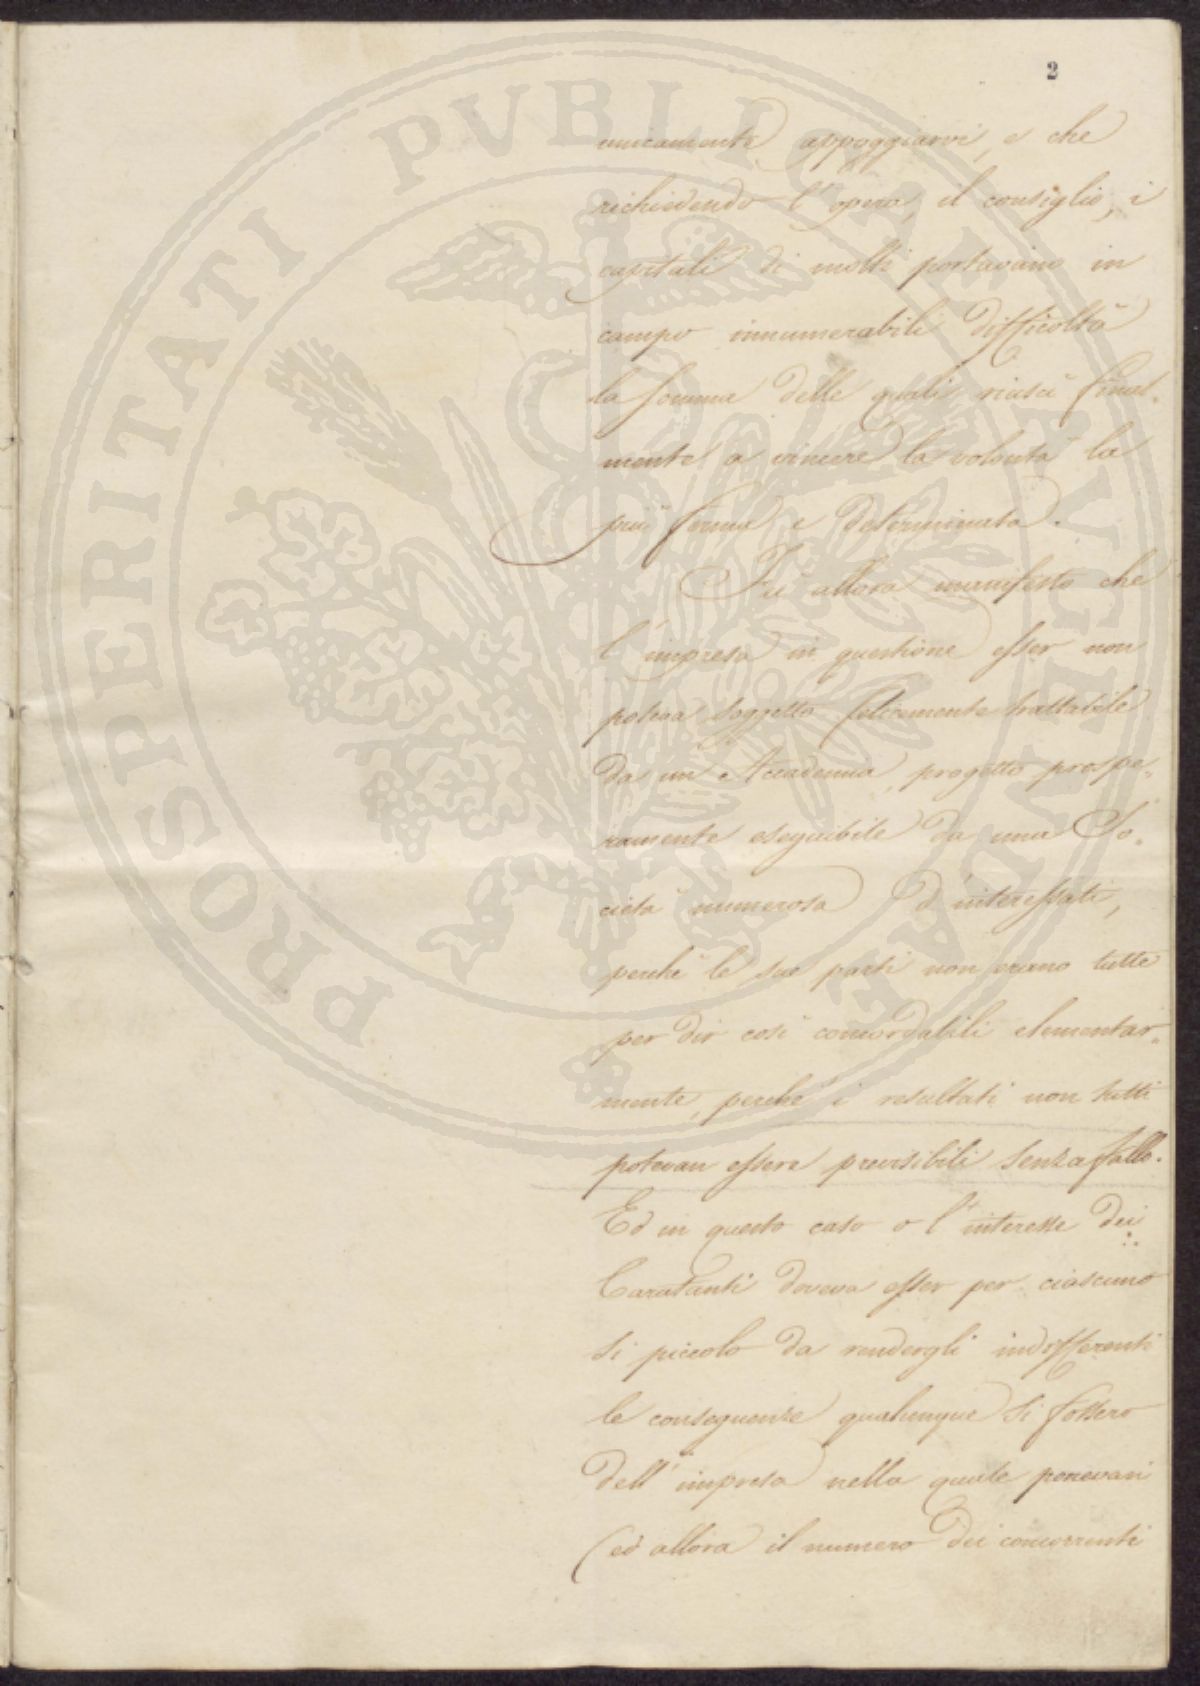 2
unicamente appoggiarvi, e che
richiedendo l'opera, il consiglio, i
capitali di molti portavano in
campo innumerabili difficoltà
la somma delle quali riuscì final=
mente a vincere la volontà la
più ferma e determinata.
Fu allora manifesto che
l'impresa in questione esser non
poteva soggetto felicemente trattabile
da un Accademia, progetto prospe=
ramente eseguibile da una So=
cietà numerosa d'interessati,
perchè le sue parti non erano tutte
per dir così concordabili elementar=
mente, perchè i resultati non tutti
potevan essere previsibili senza fallo.
Ed in questo caso o l'interesse dei
Caratanti doveva esser per ciascuno
sì piccolo da rendergli indifferenti
le conseguenze qualunque si fossero
dell'impresa nella quale ponevasi
(ed allora il numero dei concorrenti
PROSPERITATI PVBLICAE AVGENDAE